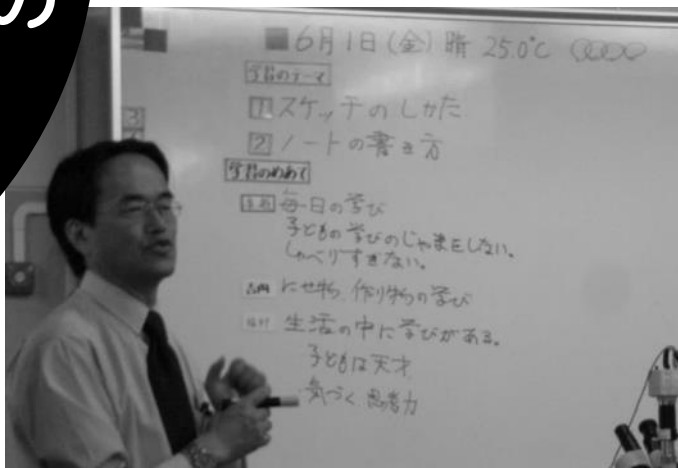 の
6月1日(金) 晴 25.0℃
学習のテーマ
1 スケッチのしかた
2 ノートの書き方
学習のめあて
毎日の学び
子どもの学びのじゃまをしない。
しゃべりすぎない。
にせ物、作り物の学び
生活の中に学びがある。
子どもは天才
気づく 思考力